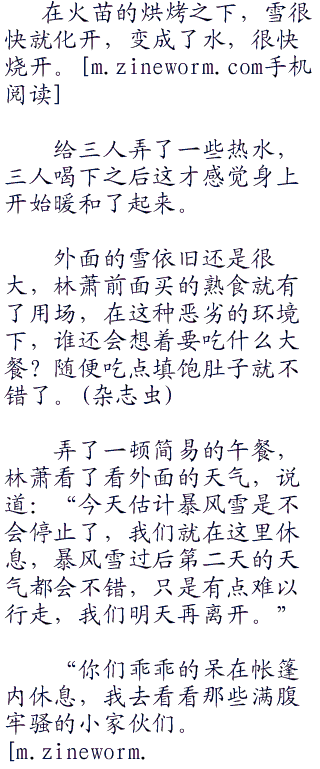 在火苗的烘烤之下，雪很
快就化开，变成了水，很快
烧开。[m.zineworm.com手机
阅读]
给三人弄了一些热水，
三人喝下之后这才感觉身上
开始暖和了起来。
外面的雪依旧还是很
大，林萧前面买的熟食就有
了用场，在这种恶劣的环境
下，谁还会想着要吃什么大
餐？随便吃点填饱肚子就不
错了。(杂志虫)
弄了一顿简易的午餐，
林萧看了看外面的天气，说
道：“今天估计暴风雪是不
会停止了，我们就在这里休
息，暴风雪过后第二天的天
气都会不错，只是有点难以
行走，我们明天再离开。”
“你们乖乖的呆在帐篷
内休息，我去看看那些满腹
牢骚的小家伙们。
[m.zineworm.